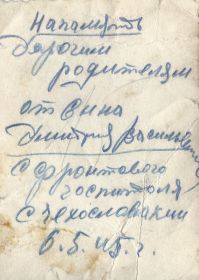 Напамять
Дорогим
родителям
от сына
Дмитрия Васильевича
с фронтового
госпиталя
с Чехословакии
6.5.45.г.